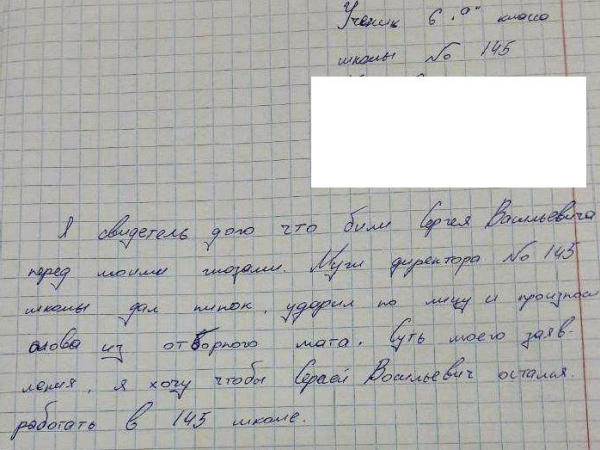 Ученик 6 "а" класса
школы № 145
Я свидетель дого что били Сергея Васильевича
перед моими глазами. Муж директора № 145
школы дал пинок, ударил по лицу и произнос
слова из отборного мата. Суть моего заяв-
ления, я хочу чтобы Сергей Васильевич остался.
работать в 145 школе.